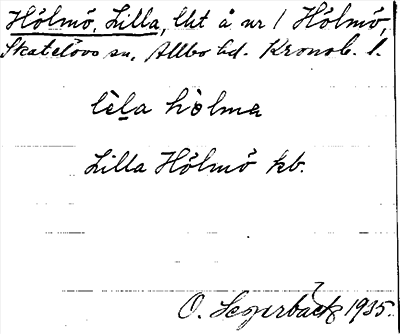 Hölmö, Lilla, lht å nr 1 Hölmö,
Skatelövs sn. Allbo hd. Kronob. l.
lèla hòlma
Lilla Hölmö kb.
O. 1935.